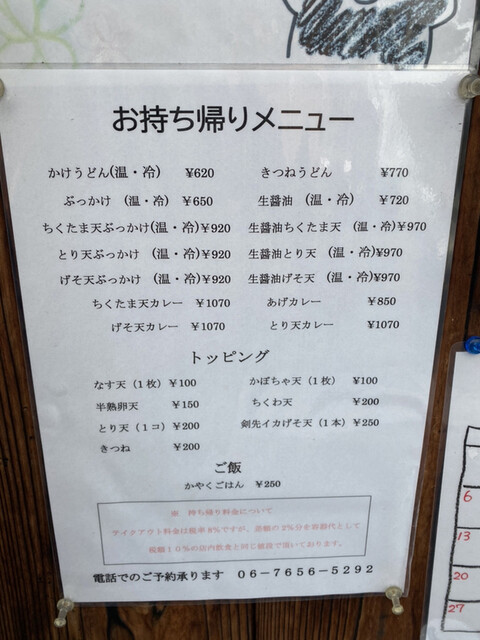 お持ち帰りメニュー
かけうどん(温・冷) ¥620 きつねうどん ¥770
ぶっかけ (温・冷) ¥650 生醤油 (温・冷) ¥720
ちくたま天ぶっかけ(温・冷)¥920 生醤油ちくたま天 (温・冷)¥970
とり天ぶっかけ (温・冷)¥920 生醤油とり天 (温・冷)¥970
げそ天ぶっかけ (温・冷)¥920 生醤油げそ天 (温・冷)¥970
ちくたま天カレー ¥1070 あげカレー ¥850
げそ天カレー ¥1070 とり天カレー ¥1070
トッピング
なす天(1枚)¥100 かぼちゃ天(1枚) ¥100
半熟卵天 ¥150 ちくわ天 ¥200
とり天(1コ)¥200 剣先イカげそ天(1本)¥250
きつね ¥200
ご飯
かやくごはん ¥250
※ 持ち帰り料金について
テイクアウト料金は税率8%ですが、差額の2%分を容器代として
税額10%の店内飲食と同じ値段で頂いております。
電話でのご予約承ります 06-7656-5292
6
13
20
27